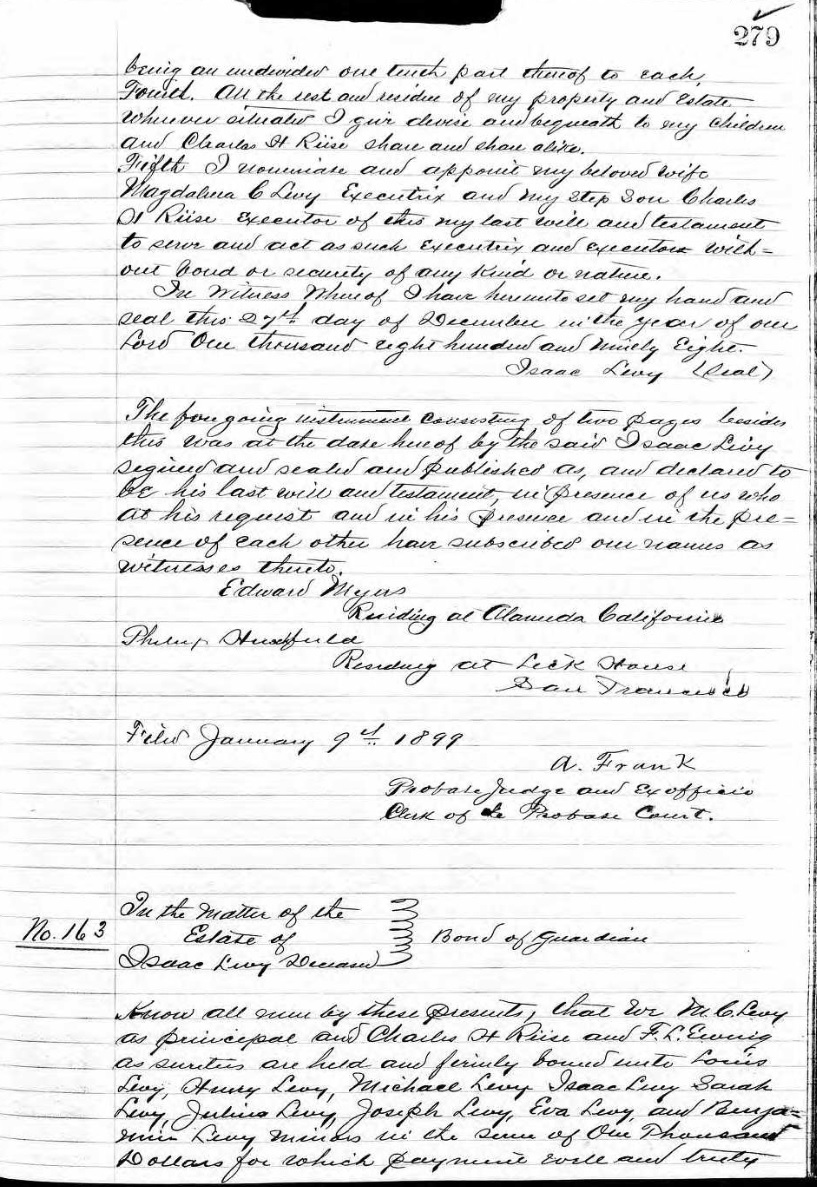 279
being an undivided one tenth part thereof to each,
Fourth. All the rest and residue of my property and Estate
wherever situated I give devise and bequeath to my children
and Charles H Riise share and share alike.
Fifth I nominate and appoint my beloved wife
Magdalena C Levy Executrix and my Step Son Charles
H Riise Executor of this my last will and testament
to serve and act as such Executrix and Executor with=
out bond or security of any kind or nature.
In Witness Whereof I have hereunto set my hand and
seal this 27th day of December in the year of our
Lord One thousand eight hundred and ninety Eight.
Isaac Levy (Seal)
The foregoing instrument consisting of two pages besides
this was at the date hereof by the said Isaac Levy
signed and sealed and published as, and declared to
be his last will and testament, in presence of us who
at his request and in his presence and in the pre=
sence of each other have subscribed our names as
witnesses thereto.
Edward Myers
Residing at Alameda California
Philip
Residing at Lick House
San Francisco
Filed January 9th 1899
A. Frank
Probate Judge and Ex officio
Clerk of the Probate Court.
In the Matter of the
No. 163 Estate of Bond of Guardian
Isaac Levy Deceased
Know all men by these presents, that We M. C. Levy
as principal and Charles H Riise and F. L.
as sureties are held and firmly bound unto Louis
Levy, Henry Levy, Michael Levy Isaac Levy Sarah
Levy, Julius Levy, Joseph Levy, Eva Levy, and Benja=
min Levy minors in the sum of One Thousand
Dollars for which payment well and truly